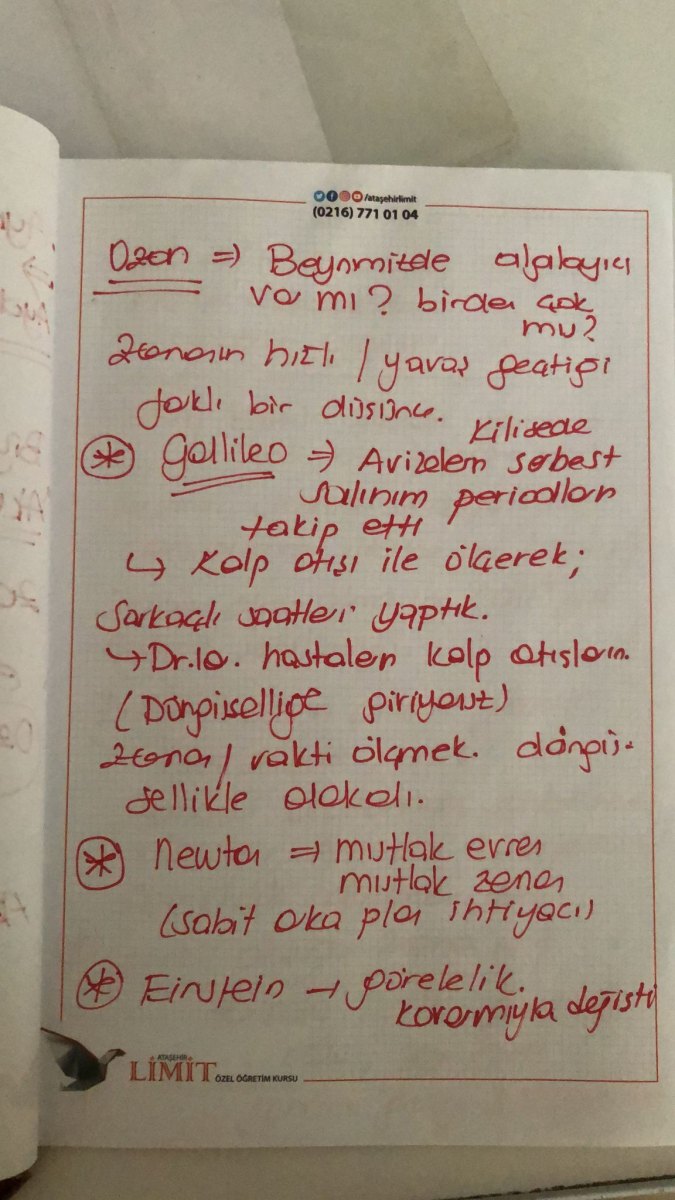 /ataşehirlimit
(0216) 771 01 04
Ozan => Beynimizde algılayıcı
va mı? birden çok
mu?
Zamanın hızlı / yavaş geçtiği
faklı bir düşünce.
Kilisede
* Gallileo => Avizelern serbest
salınım periodları
takip etti
↳ Kalp atışı ile ölçerek;
Sarkaçlı saatleri yaptık.
↳ Dr.la. hastaların kalp atışların.
(Döngüselliğe giriyoruz)
Zaman / vakti ölçmek. döngü-
sellikle alakalı.
* Newton => mutlak evren
mutlak zaman
(sabit aka plan ihtiyacı)
* Einstein → görelelik.
kavramıyla değişti
ATAŞEHİR
LİMİT ÖZEL ÖĞRETİM KURSU